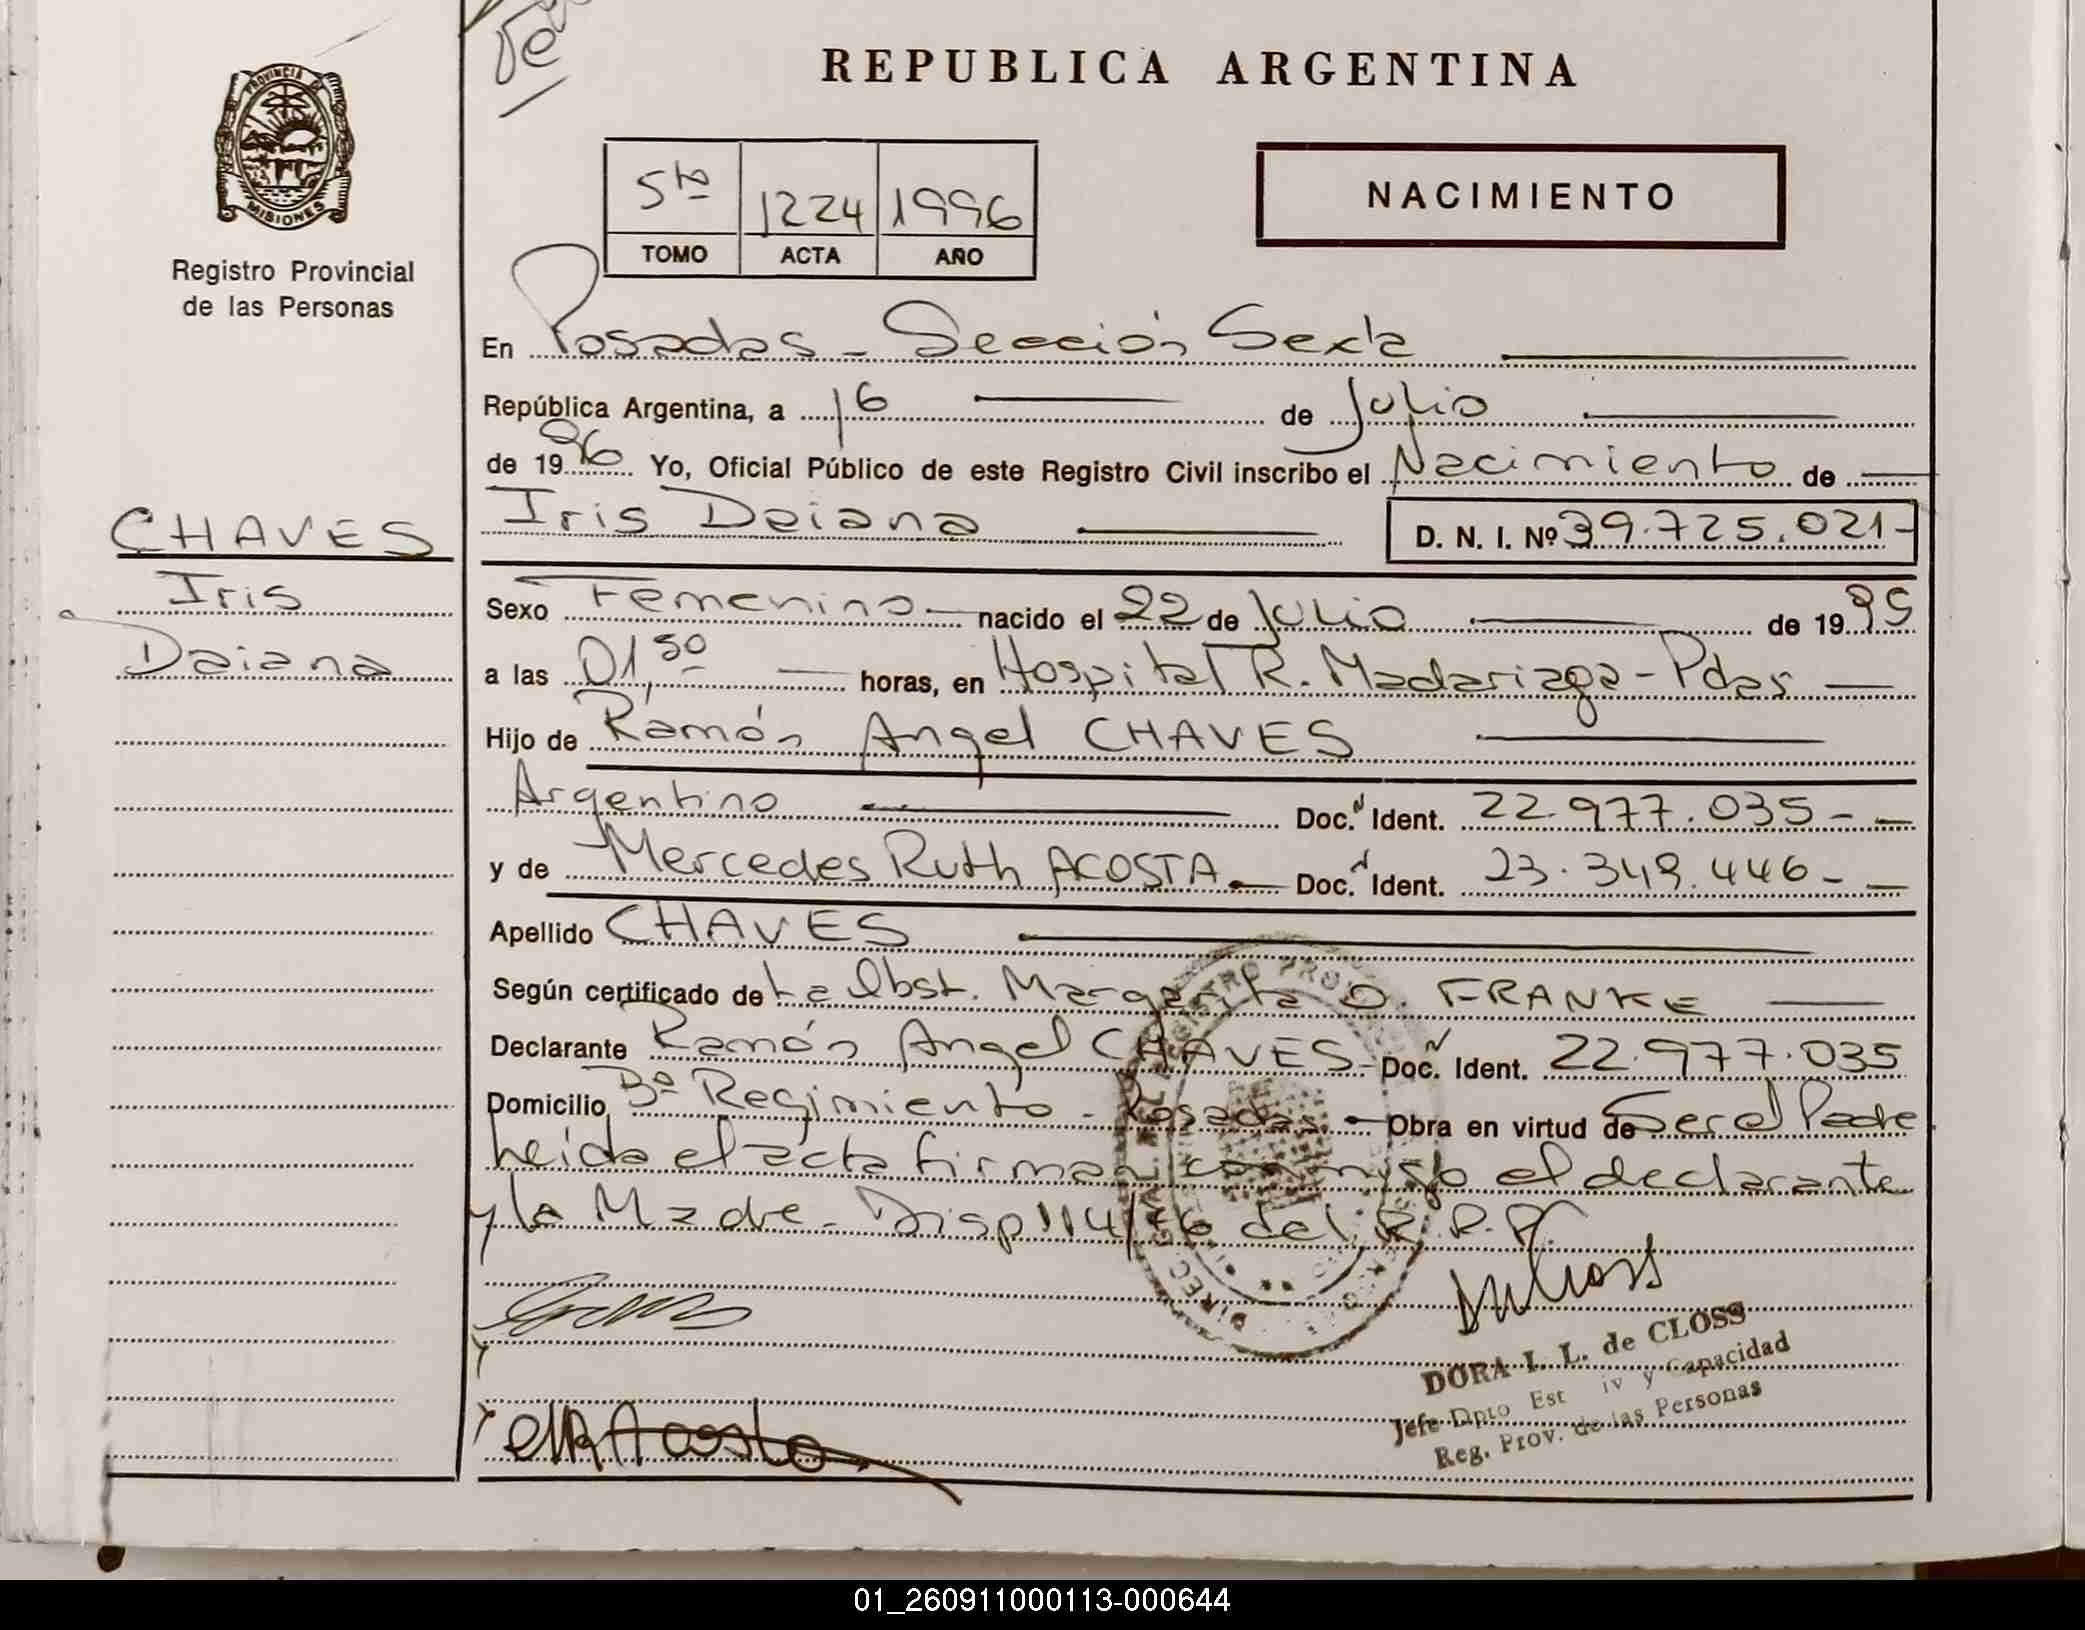 REPUBLICA ARGENTINA
PROVINCIA
MISIONES
Registro Provincial
de las Personas
5to 1224 1996
TOMO ACTA AÑO
NACIMIENTO
En Posadas - Sección Sexta
República Argentina, a 16 de Julio
de 1996 Yo, Oficial Público de este Registro Civil inscribo el Nacimiento de
Iris Daiana D. N. I. Nº 39.725.021-
CHAVES
Iris
Daiana
Sexo Femenino nacido el 22 de Julio de 1995
a las 01,50 horas, en Hospital R. Madariaga - Pdas
Hijo de Ramón Angel CHAVES
Argentino Doc. N Ident. 22.977.035-
y de Mercedes Ruth ACOSTA. Doc. N Ident. 23.349.446-
Apellido CHAVES
Según certificado de La Obst. Margarita O. FRANKE
Declarante Ramón Angel CHAVES- Doc. N Ident. 22.977.035
Domicilio Bº Regimiento - Posadas - Obra en virtud de Ser el Padre
Leida el acta firman conmigo el declarante
y la Madre - Disp 114/ del R.P.P.
MRAcosta
DORA I. L. de CLOSS
Jefe Dpto Est iv y Capacidad
Reg. Prov. de las Personas
01_260911000113-000644